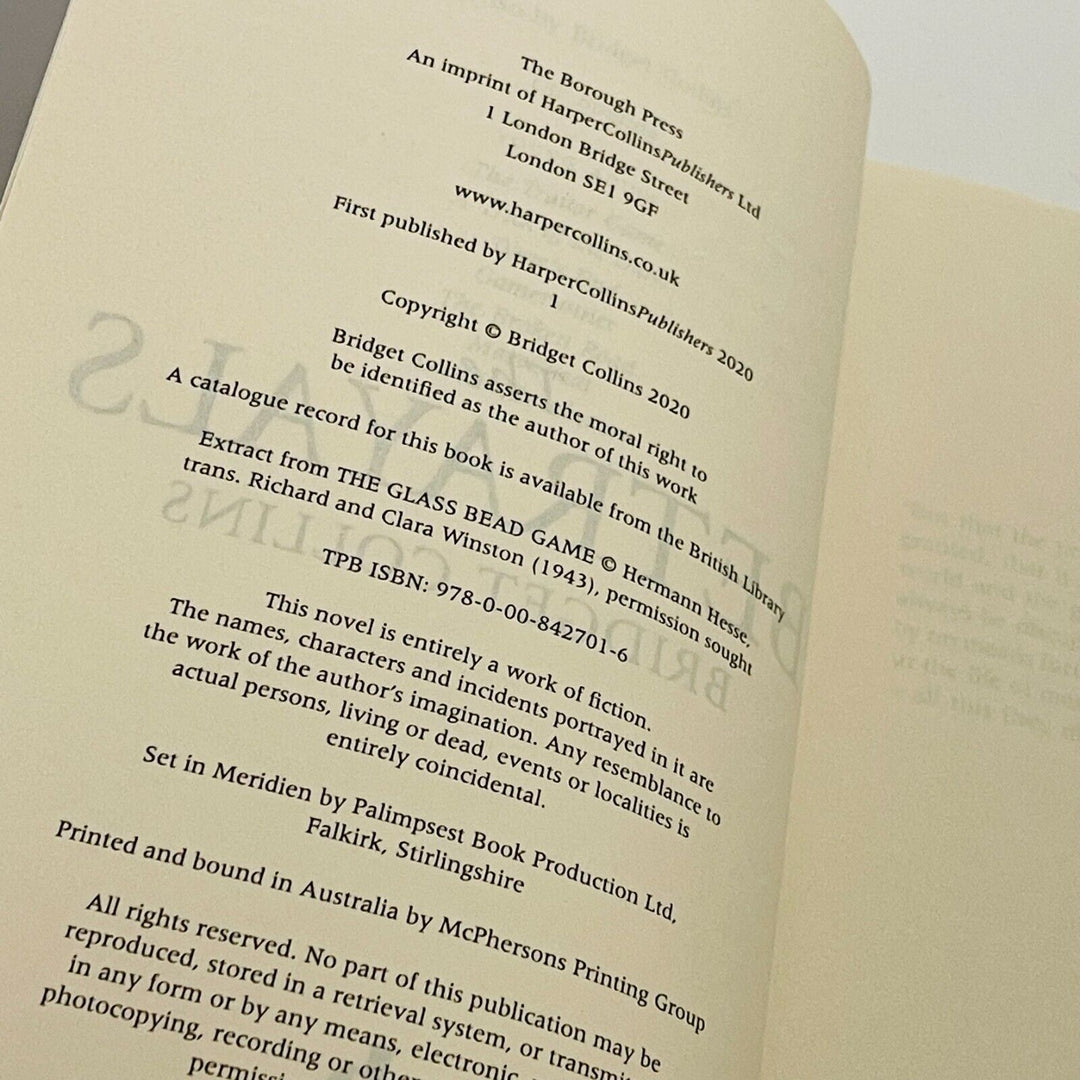 The Borough Press
An imprint of HarperCollinsPublishers Ltd
1 London Bridge Street
London SE1 9GF
www.harpercollins.co.uk
First published by HarperCollinsPublishers 2020
1
Copyright © Bridget Collins 2020
Bridget Collins asserts the moral right to
be identified as the author of this work
A catalogue record for this book is available from the British Library
Extract from THE GLASS BEAD GAME © Hermann Hesse,
trans. Richard and Clara Winston (1943), permission sought
TPB ISBN: 978-0-00-842701-6
This novel is entirely a work of fiction.
The names, characters and incidents portrayed in it are
the work of the author's imagination. Any resemblance to
actual persons, living or dead, events or localities is
entirely coincidental.
Set in Meridien by Palimpsest Book Production Ltd,
Falkirk, Stirlingshire
Printed and bound in Australia by McPhersons Printing Group
All rights reserved. No part of this publication may be
reproduced, stored in a retrieval system, or transmit
in any form or by any means, electronic,
photocopying, recording or othe
permissi
BETRAYALS
BRIDGET COLLINS